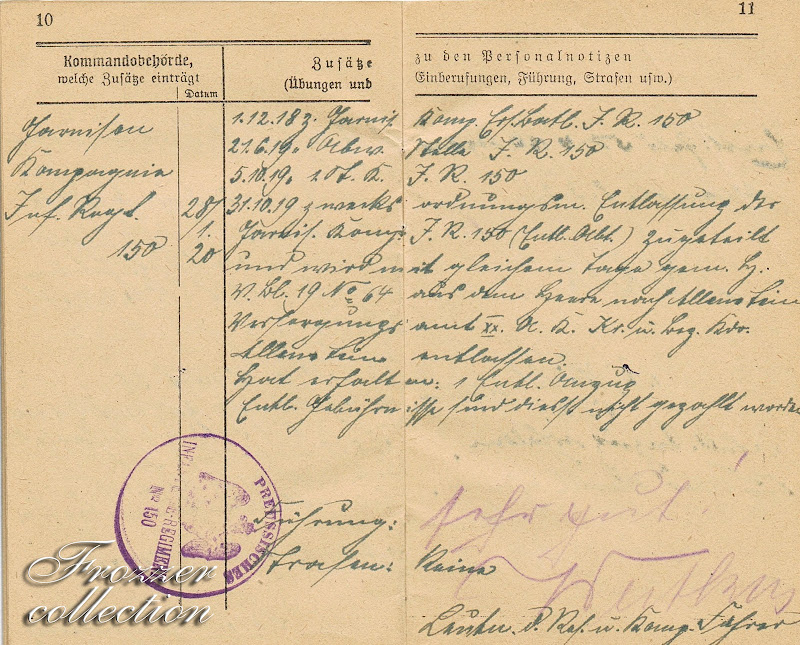 10
11
Kommandobehörde,
welche Zusätze einträgt
Datum
Zusätze
(Übungen und
zu den Personalnotizen
Einberufungen, Führung, Strafen usw.)
Garnison
Kompagnie
Inf. Regt.
150
28/
1.
20
1.12.18 z. Garnis. Komp. Ers. Batl. J. R. 150
21.6.19. Abw. Stelle J. R. 150
5.10.19. J. R. 150
31.10.19 zwecks ordnungsm. Entlassung der
Garnis. Komp. J. R. 150 (Entl. Abt.) zugeteilt
und wird mit gleichem Tage gem. H.
V. Bl. 19 No 64 aus dem Heere nach Allenstein
Versorgungsamt XX. A. K. Kr. u. Bez. Kdo.
Allenstein entlassen.
Hat erhalten: 1 Entl. Anzug
Entl. Gebührnisse sind diess. nicht gezahlt worden
Führung: sehr gut
Strafen: Keine
Leutn. d. Res. u. Komp. Führer
PREUSSISCHES
INFANTERIE-REGIMENT
No 150
Frozzer
collection